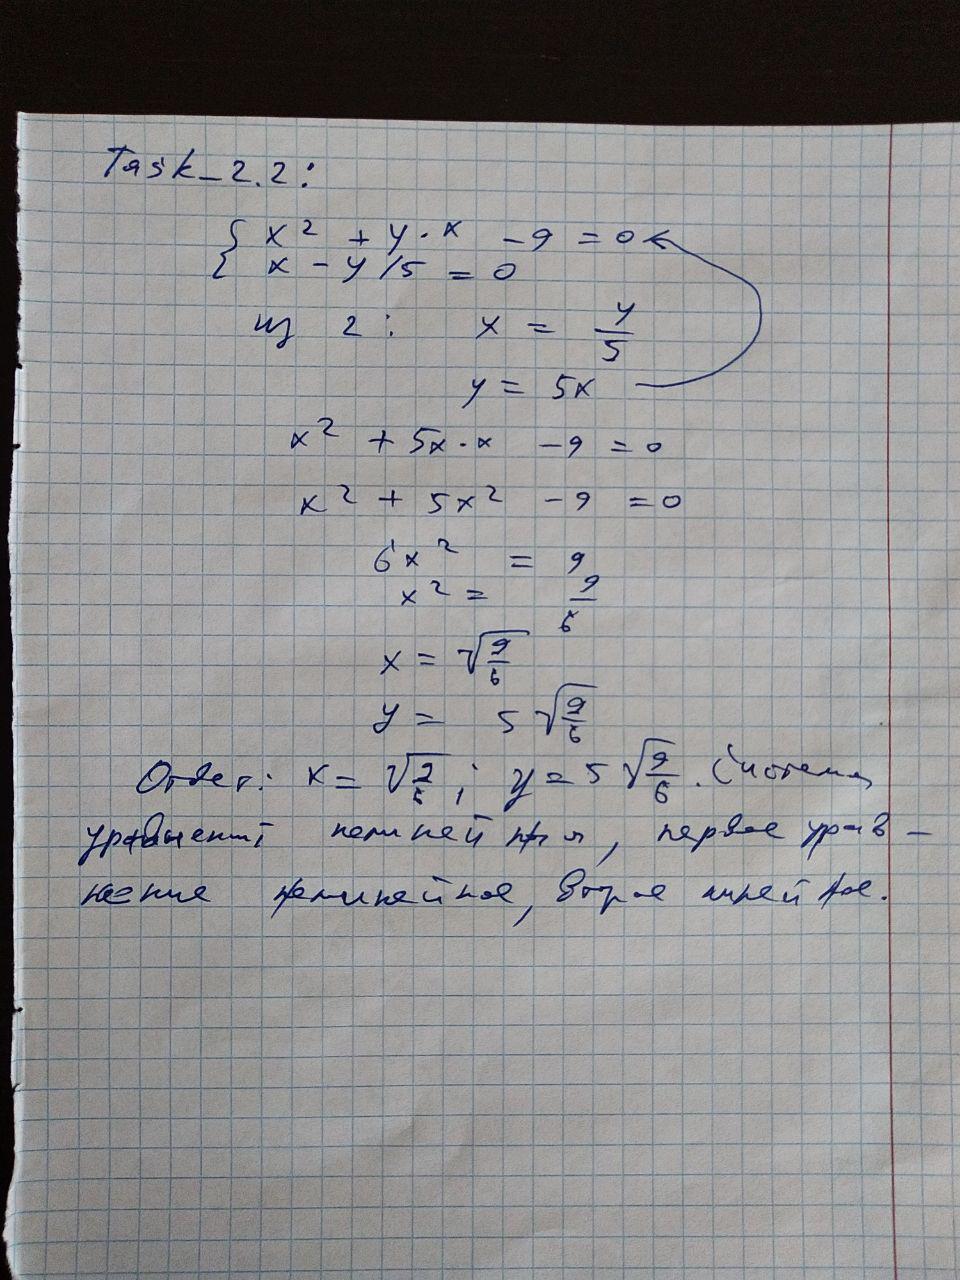 Task_2.2:
{ x² + y·x - 9 = 0
x - y/5 = 0
из 2: x = y/5
y = 5x
x² + 5x·x - 9 = 0
x² + 5x² - 9 = 0
6x² = 9
x² = 9/6
x = √(9/6)
y = 5√(9/6)
Ответ: x = √(9/6); y = 5√(9/6). Система
уравнений нелинейная, первое урав-
нение нелинейное, второе линейное.